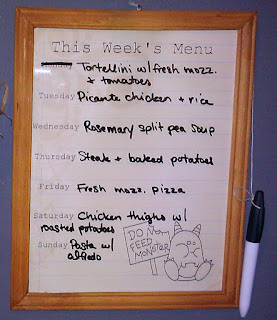 This Week's Menu
Tortellini w/fresh mozz.
+ tomatoes
Tuesday Picante chicken + rice
Wednesday Rosemary split pea soup
Thursday Steak + baked potatoes
Friday Fresh mozz. pizza
Saturday Chicken thighs w/
roasted potatoes
Sunday Pasta w/
alfredo
DO NOT
FEED
MONSTER